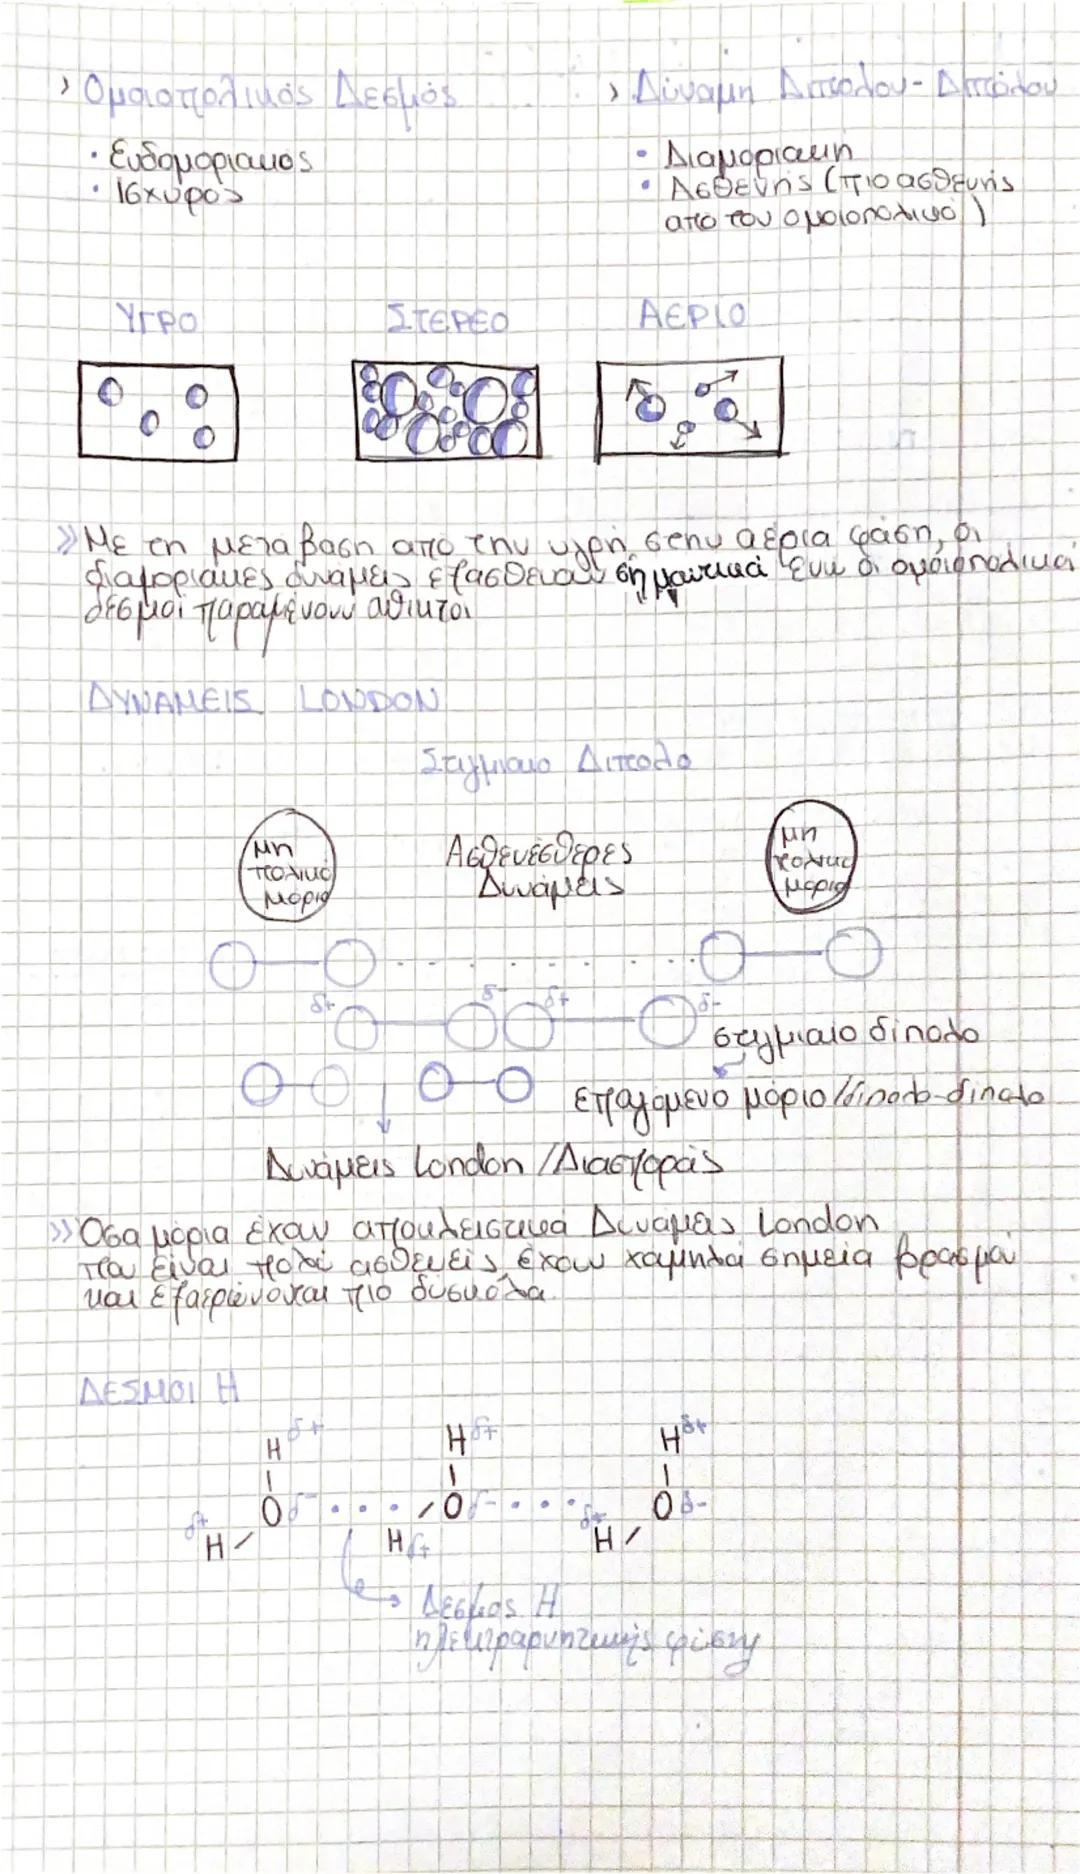 › Ομοιοπολικός Δεσμός
› Δύναμη Διπόλου - Διπόλου
• Ενδομοριακος
• Ισχυρός
• Διαμοριακη
• Ασθενής (πιο ασθενής
απο τον ομοιοπολικό)
ΥΓΡΟ
ΣΤΕΡΕΟ
ΑΕΡΙΟ
» Με τη μετάβαση απο την υγρή στην αέρια φάση, οι
διαμοριακες δυνάμεις εξασθενουν σημαντικά ενω οι ομοιοπολικοί
δεσμοί παραμένουν αθικτοι
ΔΥΝΑΜΕΙΣ LONDON
Στιγμιαιο Διπολο
μη
πολικο
μοριο
Ασθενέσθερες
Δυνάμεις
μη
πολικο
μοριο
δ+ δ- δ+ δ-
στιγμιαιο δίπολο
επαγόμενο μόριο/δίπολο-δίπολο
Δυνάμεις London / Διασποράς
» Οσα μόρια έχουν αποκλειστικά Δυνάμεις London
που είναι πολύ ασθενείς έχουν χαμηλά σημεία βρασμού
και εξαερώνονται πιο δύσκολα
ΔΕΣΜΟΙ Η
H δ+ H δ+ H δ+
O δ- ... O δ- ... O δ-
δ+ H H δ+ δ+ H
Δεσμος Η
ηλεκτραρνητικής φύσης